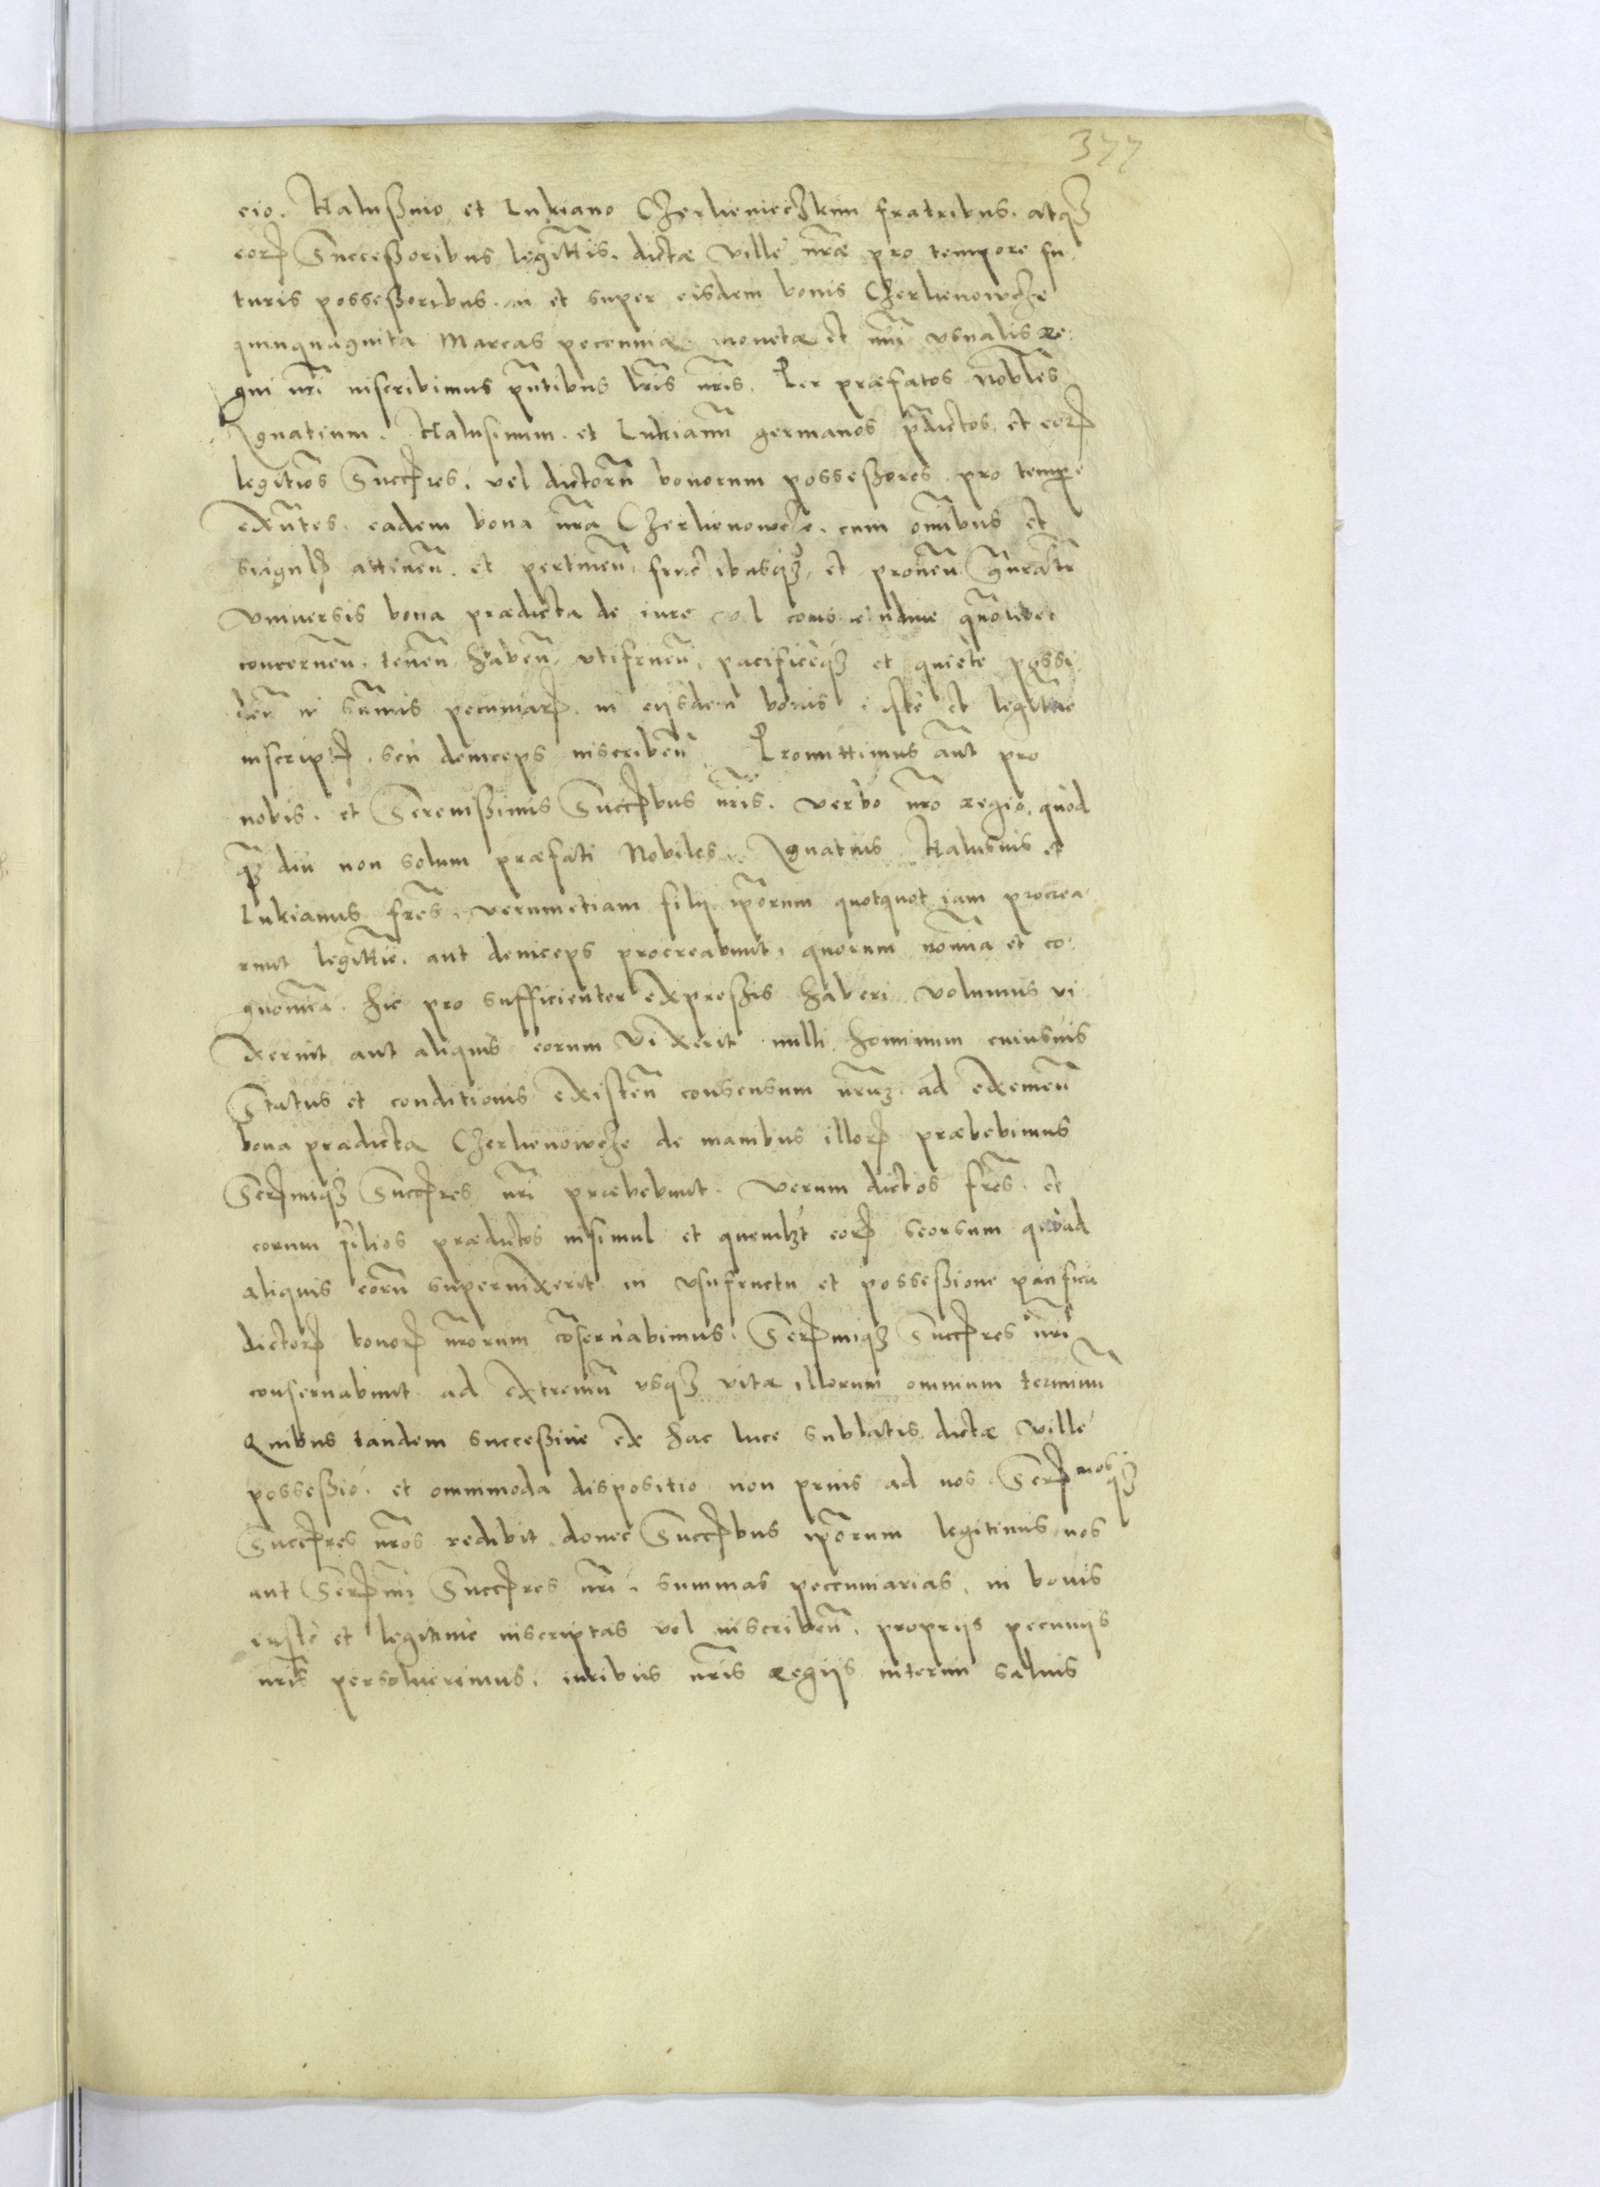 377
cio. Halußnio et Lukiano Czerlienieczkim fratribus. atqȝ
eorꝝ Succeßoribus legittis. dictæ Ville nr̃æ pro tempore fu
turis possessoribus. in et super eisdem bonis Czerlienowcze
quinquaginta Marcas pecuniæ. monetæ et nũi vsualis Re
gni nr̃i inscribimus pñtibus lr̃is nr̃is. Per præfatos Nobiles
Ignatium. Halusinum. et Lukianũ germanos p̃dictos, et eorꝝ
legitios Succꝭres. vel dictorũ bonorum possessores. pro tempe
exñtes. eadem bona nr̃a Czerlienowcze. cum om̃ibus et
singulꝭ attineñ. et pertineñ. fructibusqȝ, et proueñ gñraltr
Vniuersis bona prædicta de iure vel consuetudine quõlibet
concerneñ. teneñ habeñ. vtifrueñ. pacificeqȝ et quiete possi
deñ in sum̃is pecuniarꝝ in eijsdem bonis iuste et legitime
inscriptꝭ. seu deinceps inscribeñ. Promittimus aut̃ pro
nobis. et Serenißimis Succꝭbus nr̃is. verbo nr̃o Regio, quod
qȝ diu non solum præfati Nobiles. Ignatius Halusnis et
Lukianus fr̃es. verumetiam filij ip̃orum quotquot iam procrea
runt legittie. aut deinceps procreabunt, quorum nom̃ina et co
gnom̃ina. hic pro sufficienter expreßis haberi volumus vi
xerint aut aliquis eorum vixerit nulli hominum cuiusuis
Status et conditionis existeñ consensum nr̃uȝ. ad exemeñ
bona prædicta Czerlienowcze de manibus illorꝝ præbebimus
Serꝭmiqȝ Succꝭres nr̃i præbebunt. Verum dictos fr̃es. et
eorum filios prædictos insimul et quemlȝt eorꝝ seorsum quoad
aliquis eorũ superuixerit in vsufructu et possessione pacifica
dictorꝝ bonorꝝ nr̃orum cõseruabimus. Serꝭmiqȝ Succꝭres nr̃i
conseruabunt ad extremũ vsqȝ vitæ illorum omnium terminũ
Quibus tandem succeßiue ex hac luce sublatis dictæ Ville
possessio. et omnimoda dispositio non prius ad nos Serꝭmosqȝ
Succꝭres nr̃os redibit donec Succꝭbus ip̃orum legitimis nos
aut Serꝭmi Succꝭres nr̃i. summas pecuniarias, in bonis
iuste et legitime inscriptas vel inscribeñ. proprijs pecunijs
nr̃is persoluerimus. iuribus nr̃is Regijs interim saluis